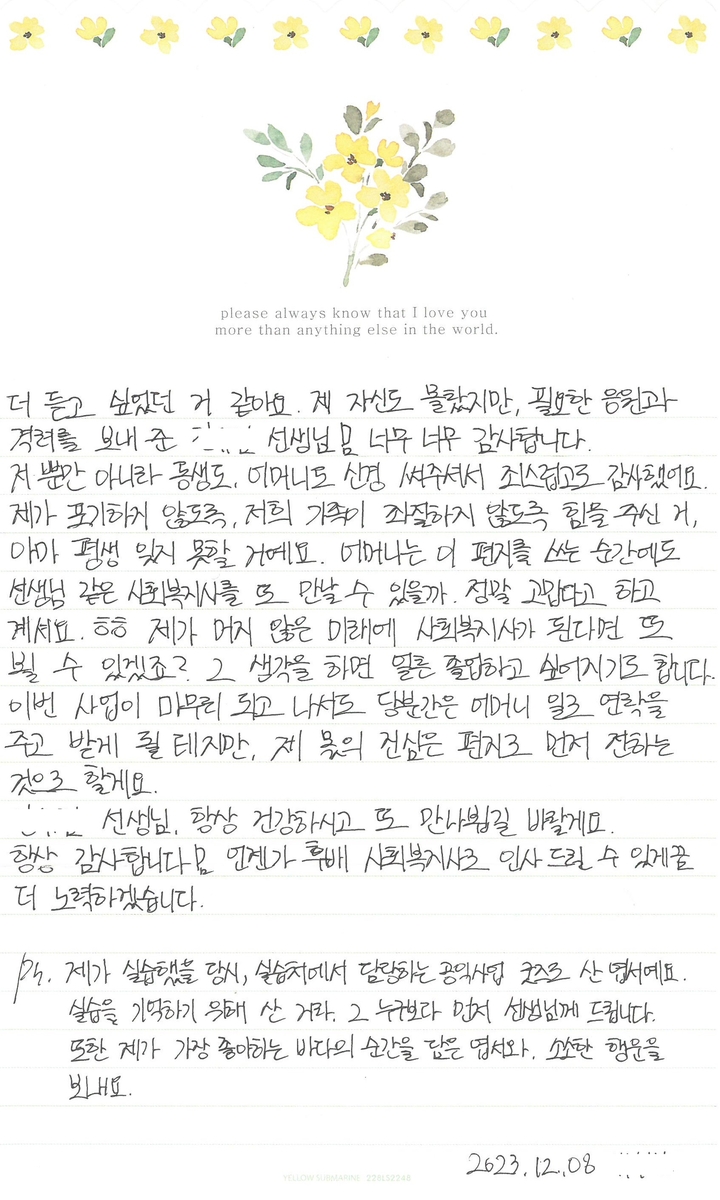 please always know that I love you
more than anything else in the world.
더 듣고 싶었던 거 같아요. 제 자신도 몰랐지만, 필요한 응원과
격려를 보내 준 선생님!! 너무 너무 감사합니다.
저 뿐만 아니라 동생도, 어머니도 신경 써주셔서 죄스럽고도 감사했어요.
제가 포기하지 않도록, 저희 가족이 좌절하지 않도록 힘을 주신 거,
아마 평생 잊지 못할 거예요. 어머니는 이 편지를 쓰는 순간에도
선생님 같은 사회복지사를 또 만날 수 있을까. 정말 고맙다고 하고
계세요. ㅎㅎ 제가 머지 않은 미래에 사회복지사가 된다면 또
뵐 수 있겠죠? 그 생각을 하면 얼른 졸업하고 싶어지기도 합니다.
이번 사업이 마무리 되고 나서도 당분간은 어머니 일로 연락을
주고 받게 될 테지만, 제 몫의 진심은 편지로 먼저 전하는
것으로 할게요.
선생님, 항상 건강하시고 또 만나뵙길 바랄게요.
항상 감사합니다!! 언젠가 후배 사회복지사로 인사 드릴 수 있게끔
더 노력하겠습니다.
Ps. 제가 실습했을 당시, 실습처에서 담당하는 공익사업 굿즈로 산 엽서예요.
실습을 기억하기 위해 산 거라, 그 누구보다 먼저 선생님께 드립니다.
또한 제가 가장 좋아하는 바다의 순간을 담은 엽서와, 소소한 행운을
보내요.
2023.12.08
YELLOW SUBMARINE 22SLS2248